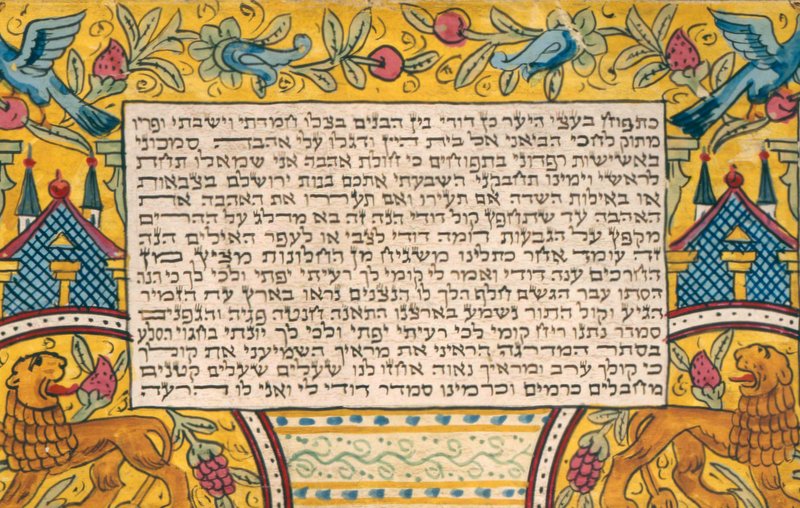 כתפוח בעצי היער כן דודי בין הבנים בצלו חמדתי וישבתי ופריו
מתוק לחכי הביאני אל בית היין ודגלו עלי אהבה סמכוני
באשישות רפדוני בתפוחים כי חולת אהבה אני שמאלו תחת
לראשי וימינו תחבקני השבעתי אתכם בנות ירושלם בצבאות
או באילות השדה אם תעירו ואם תעררו את האהבה את
האהבה עד שתחפץ קול דודי הנה זה בא מדלג על ההרים
מקפץ על הגבעות דומה דודי לצבי או לעפר האילים הנה
זה עומד אחר כתלינו משגיח מן החלונות מציץ מן
החרכים ענה דודי ואמר לי קומי לך רעיתי יפתי ולכי לך כי הנה
הסתו עבר הגשם חלף הלך לו הנצנים נראו בארץ עת הזמיר
הגיע וקול התור נשמע בארצנו התאנה חנטה פגיה והגפנים
סמדר נתנו ריח קומי לכי רעיתי יפתי ולכי לך יונתי בחגוי הסלע
בסתר המדרגה הראיני את מראיך השמיעני את קולך
כי קולך ערב ומראיך נאוה אחזו לנו שעלים שעלים קטנים
מחבלים כרמים וכרמינו סמדר דודי לי ואני לו הרעה